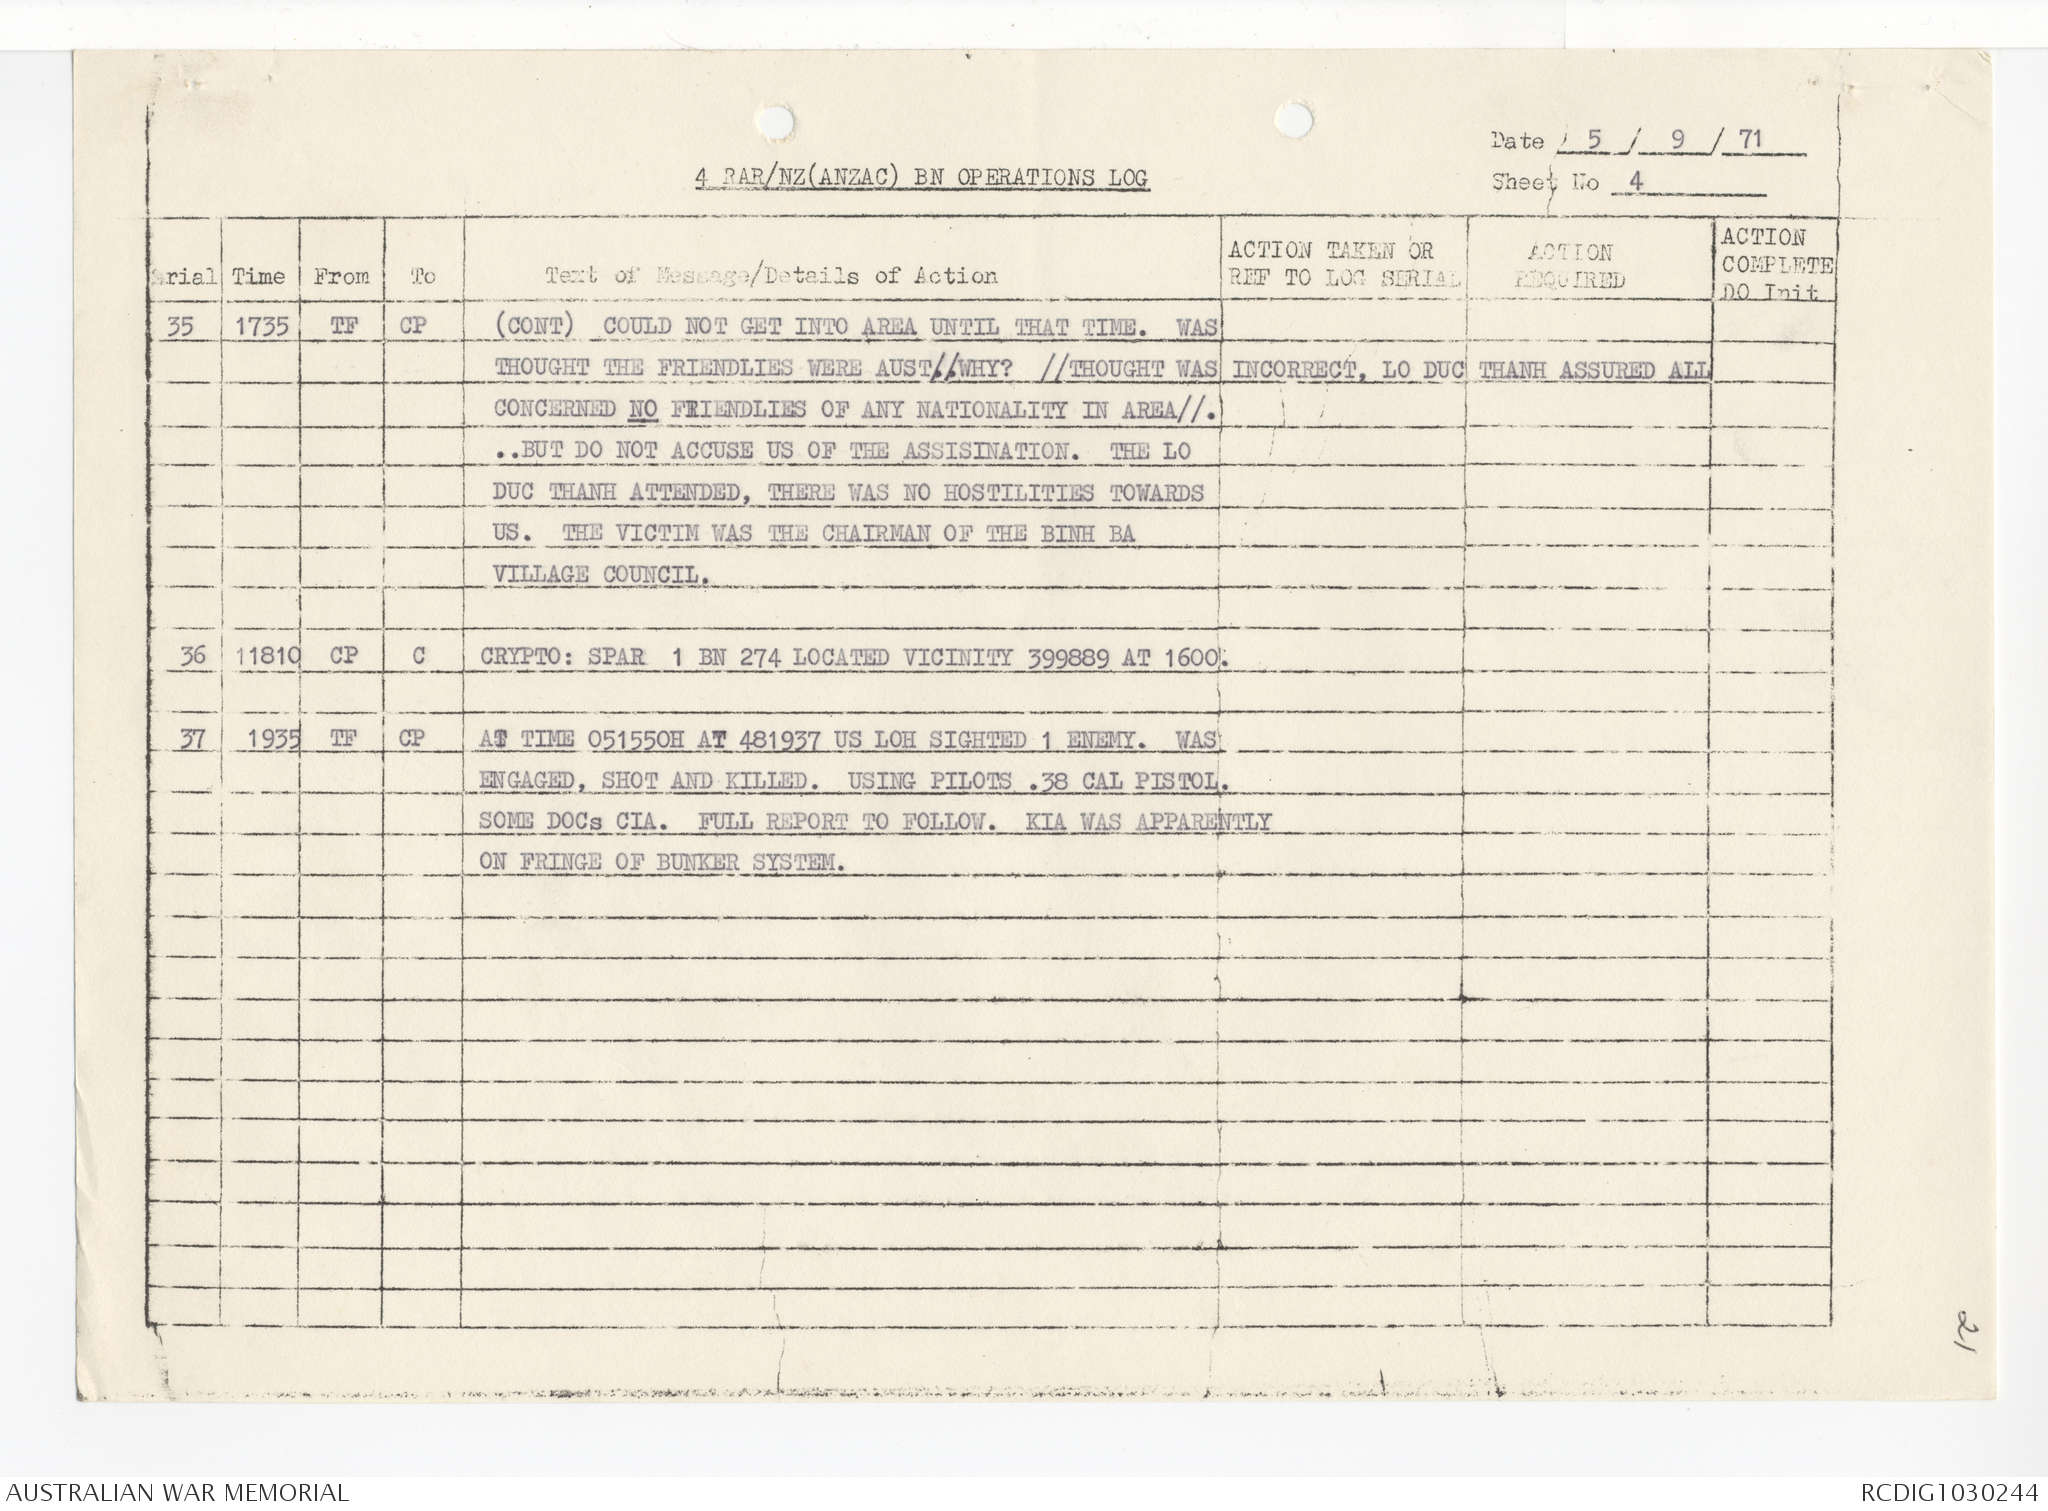 Date / 5 / 9 / 71
4 RAR/NZ(ANZAC) BN OPERATIONS LOG
Sheet No 4
erial Time From To Text of Message/Details of Action ACTION TAKEN OR REF TO LOG SERIAL ACTION REQUIRED ACTION COMPLETE DO Init
35 1735 TF CP (CONT) COULD NOT GET INTO AREA UNTIL THAT TIME. WAS
THOUGHT THE FRIENDLIES WERE AUST//WHY? //THOUGHT WAS INCORRECT, LO DUC THANH ASSURED ALL
CONCERNED NO FRIENDLIES OF ANY NATIONALITY IN AREA//.
..BUT DO NOT ACCUSE US OF THE ASSISINATION. THE LO
DUC THANH ATTENDED, THERE WAS NO HOSTILITIES TOWARDS
US. THE VICTIM WAS THE CHAIRMAN OF THE BINH BA
VILLAGE COUNCIL.
36 11810 CP C CRYPTO: SPAR 1 BN 274 LOCATED VICINITY 399889 AT 1600.
37 1935 TF CP AT TIME 051550H AT 481937 US LOH SIGHTED 1 ENEMY. WAS
ENGAGED, SHOT AND KILLED. USING PILOTS .38 CAL PISTOL.
SOME DOCs CIA. FULL REPORT TO FOLLOW. KIA WAS APPARENTLY
ON FRINGE OF BUNKER SYSTEM.
21
AUSTRALIAN WAR MEMORIAL
RCDIG1030244